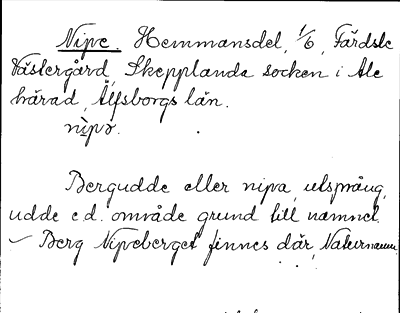 Nipe. Hemmansdel, 1/6, Färdsle
Västergård, Skepplanda socken i Ale
härad, Älfsborgs län.
nìpə.
Bergudde eller nipa, utsprång,
udde e.d. område grund till namnet.
– Berg Nipeberget finnes där, Naturnamn.